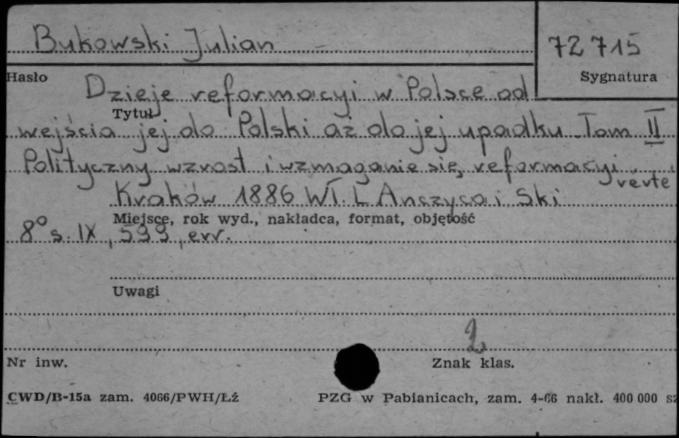 Bukowski Julian
72715
Hasło
Sygnatura
Dzieje reformacyi w Polsce od
Tytuł
wejścia jej do Polski aż do jej upadku. Tom II
Polityczny wzrost i wzmaganie się reformacyi.
verte
Kraków 1886 Wł. L. Anczyca i Ski
Miejsce, rok wyd., nakładca, format, objętość
8° s. IX, 599, err.
Uwagi
2
Nr inw.
Znak klas.
CWD/B-15a zam. 4066/PWH/Łź
PZG w Pabianicach, zam. 4-66 nakł. 400 000 sz